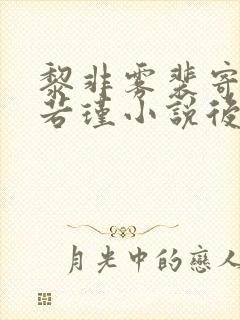 黎非雾裴寄
若瑾小說後
月光中的戀人